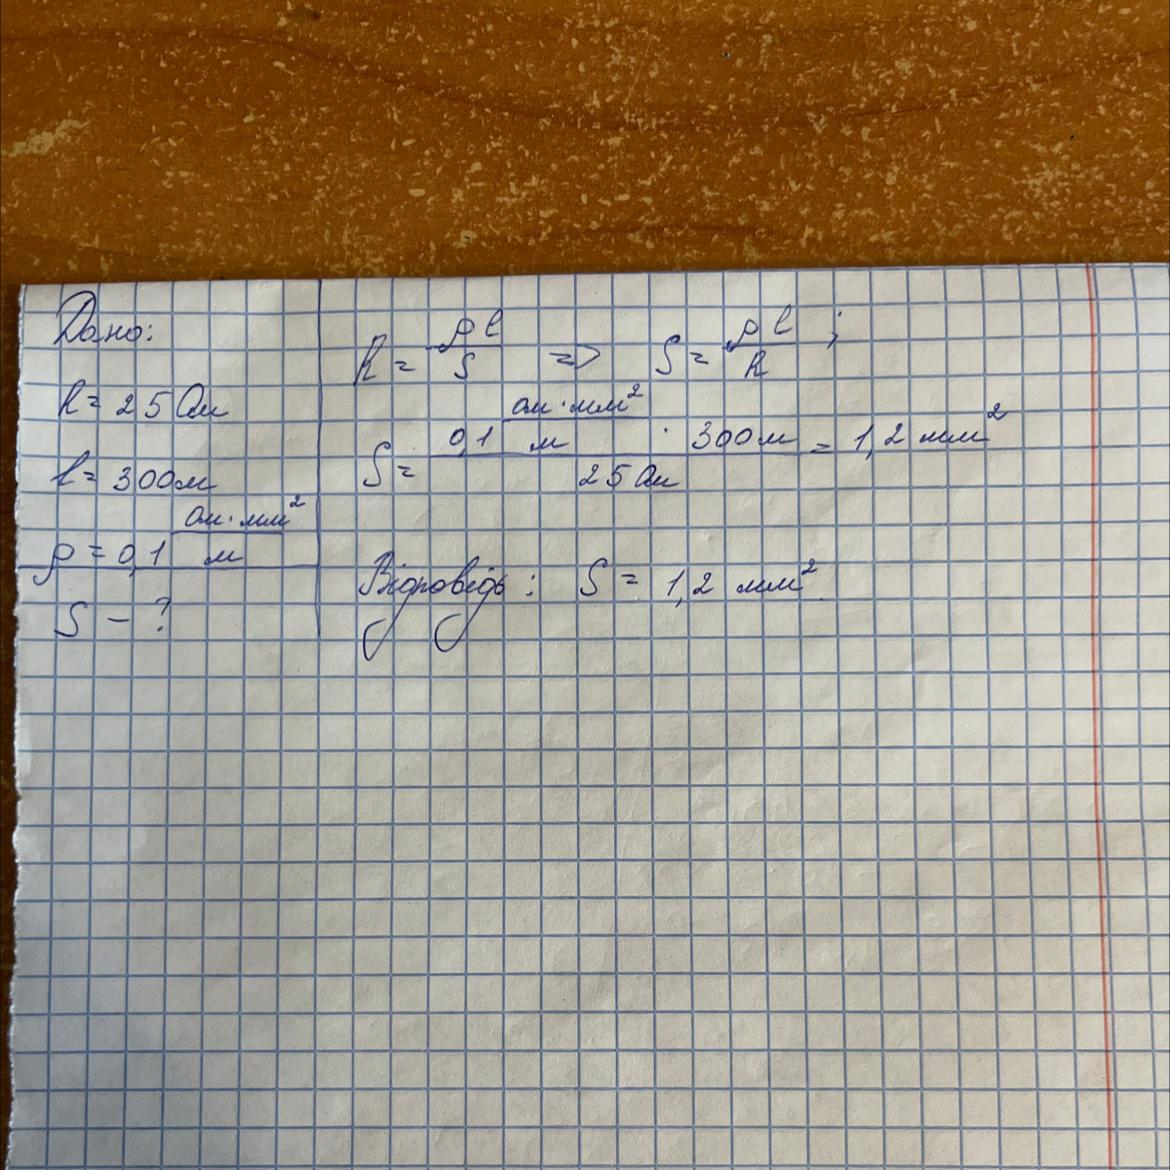 Дано:
R = 25 Ом
l = 300 м
ρ = 0,1 ом·мм²/м
S – ?
R = ρl/S => S = ρl/R ;
S = 0,1 ом·мм²/м · 300 м / 25 Ом = 1,2 мм²
Відповідь: S = 1,2 мм².